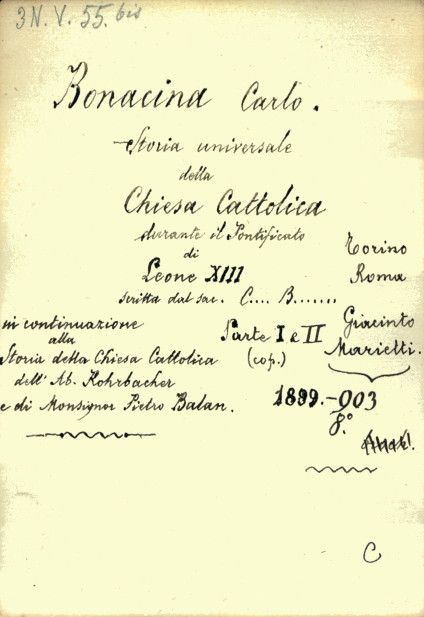 3N. V. 55. bis
Bonacina Carlo.
Storia universale
della
Chiesa Cattolica
durante il Pontificato
di
Leone XIII
scritta dal sac. C.... B.......
in continuazione
alla
Storia della Chiesa Cattolica
dell' Ab. Rohrbacher
e di Monsignor Pietro Balan.
Parte I e II
(cop.)
Torino
Roma
Giacinto
Marietti.
1899.-903
8.°
C